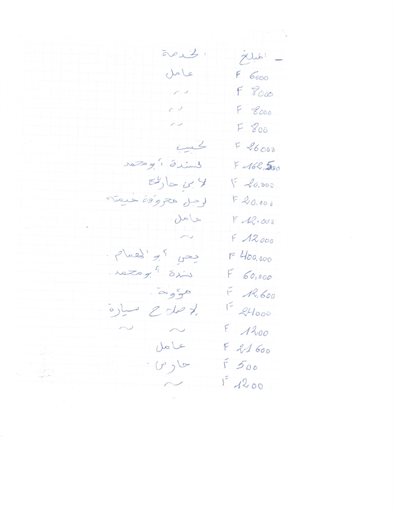 المبلغ الخدمة
F 6000 عامل
F 8000 //
F 8000 //
F 800 //
F 26000
F 162.500 أبو محمد
F 20.000
F 20.000
F 12.000 عامل
F 12000 ~
F 400.000 يحي أبو الهمام
F 60.000 أبو محمد
F 12.600
F 24000 لإصلاح سيارة
F 1200 ~ ~
F 21600 عامل
F 500 حارس
F 1200 ~